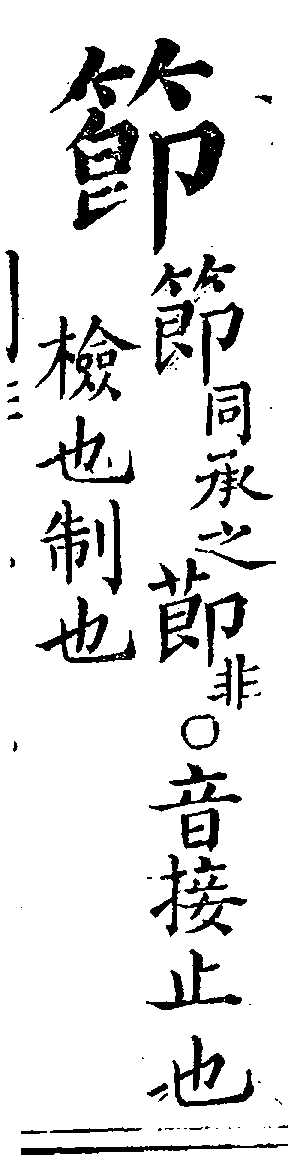 節
節同承之莭非○音接止也
檢也制也